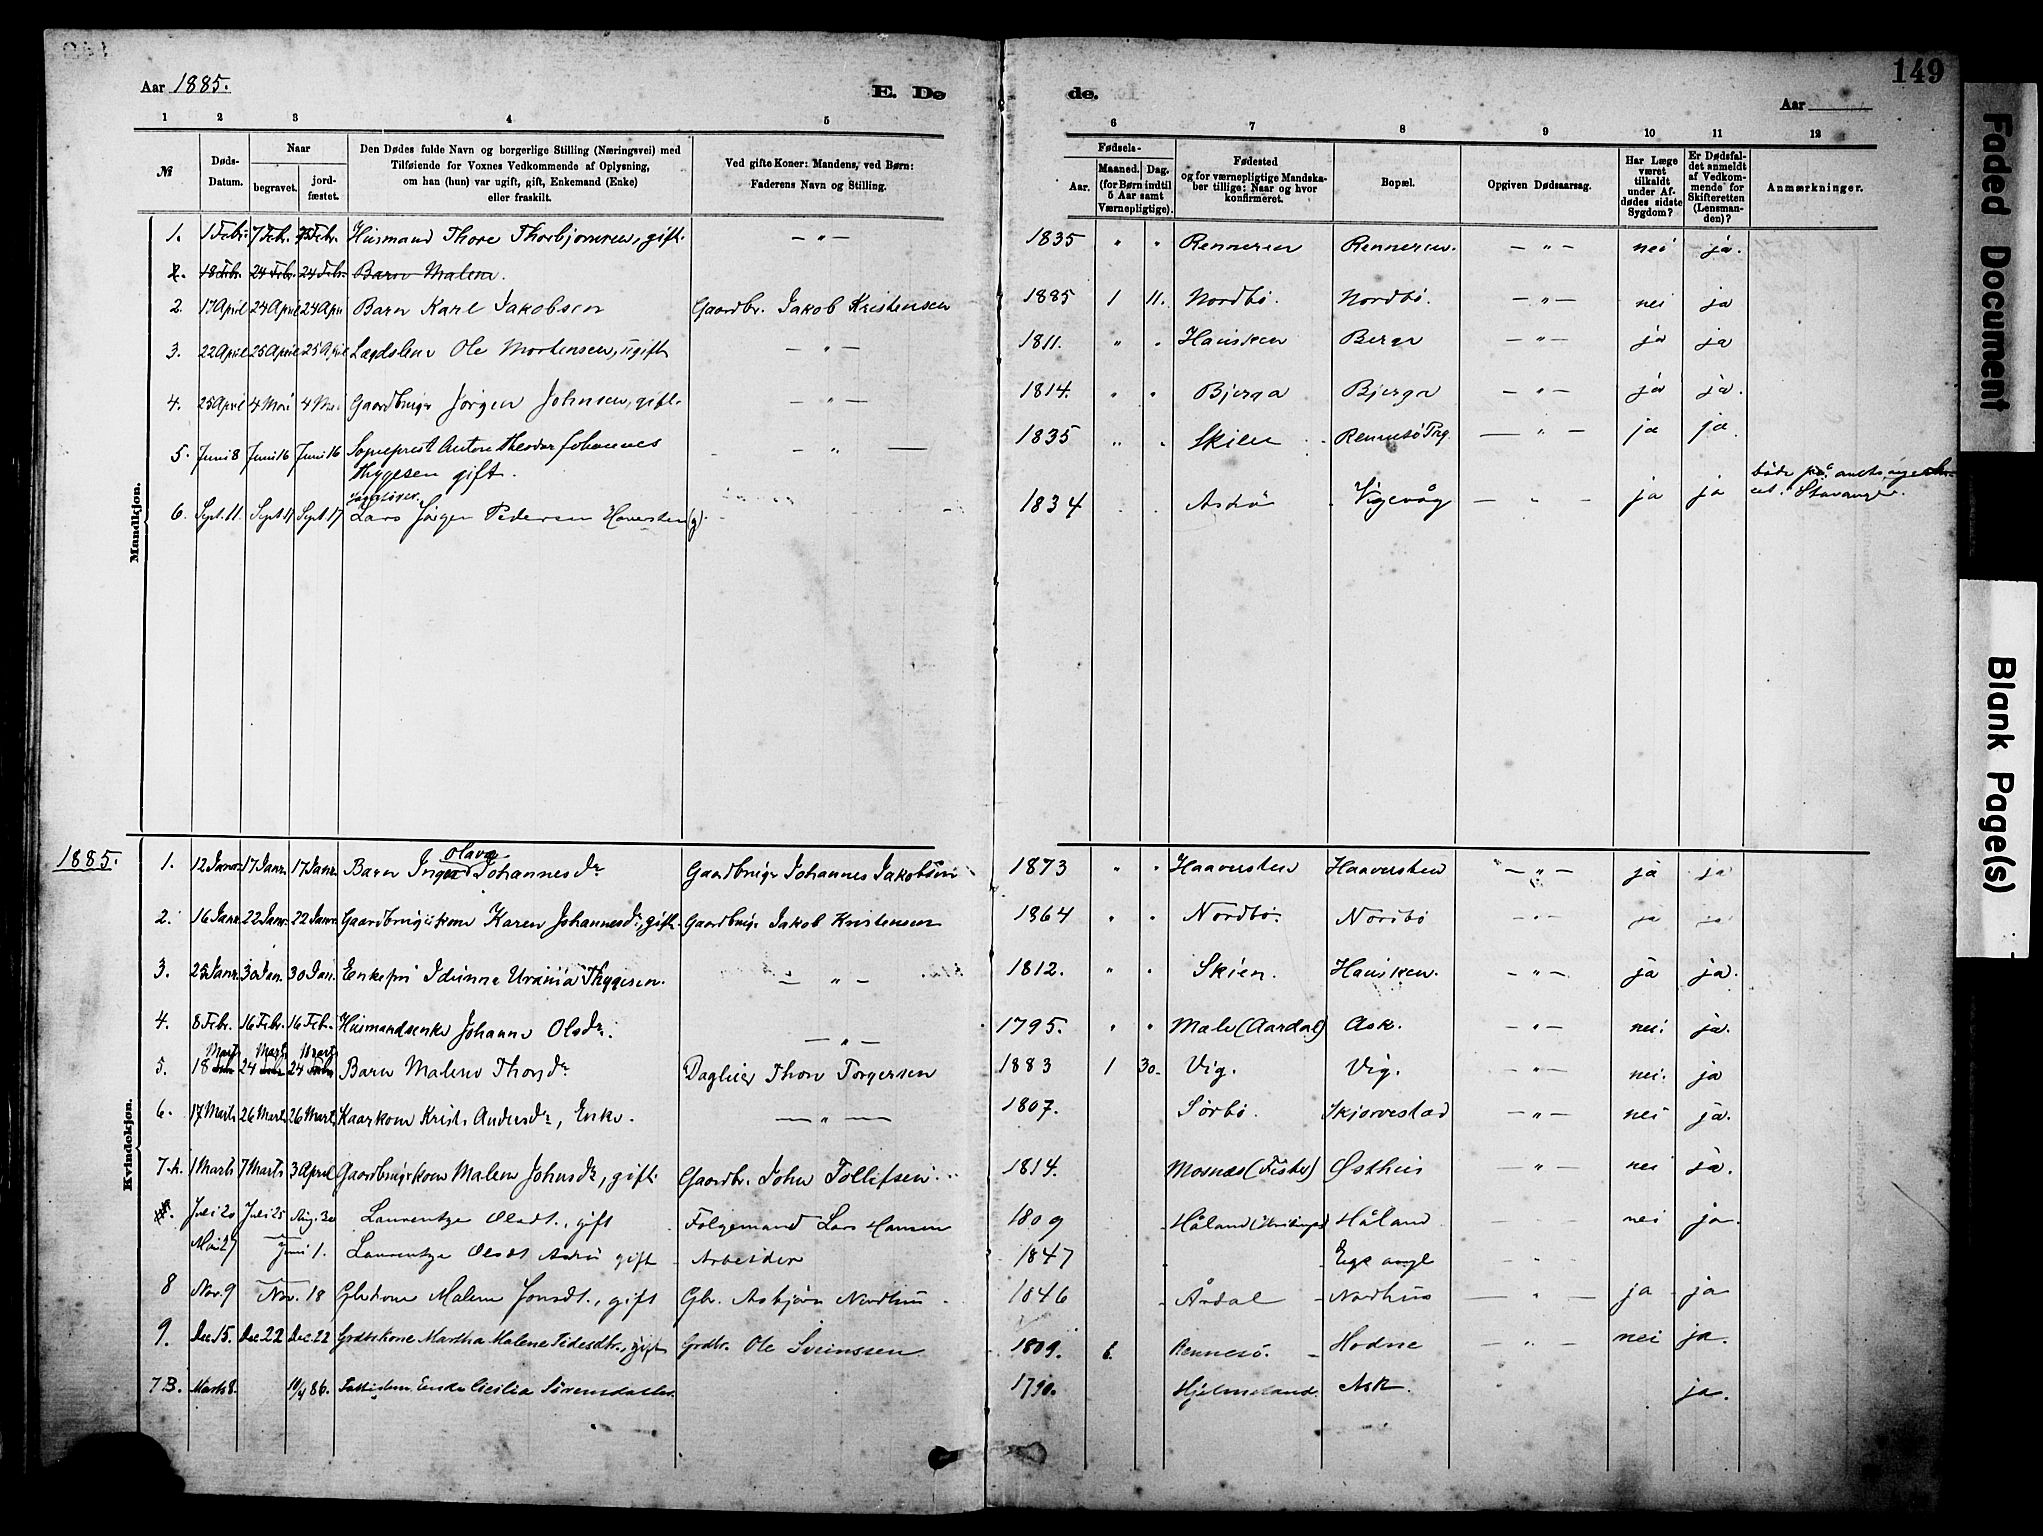 149
Aar 1885.
E. Dø
de.
Aar
1 2 3 4 5 6 7 8 9 10 11 12
№
Døds-Datum.
Naar
begravet.
jord-fæstet.
Den Dødes fulde Navn og borgerlige Stilling (Næringsvei) med
Tilføiende for Voxnes Vedkommende af Oplysning,
om han (hun) var ugift, gift, Enkemand (Enke)
eller fraskilt.
Ved gifte Koner: Mandens, ved Børn:
Faderens Navn og Stilling.
Fødsels-
Aar.
Maaned. Dag.
(for Børn indtil
5 Aar samt
Værnepligtige).
Fødested
og for værnepligtige Mandska-
ber tillige: Naar og hvor
konfirmeret.
Bopæl.
Opgiven Dødsaarsag.
Har Læge
været
tilkaldt
under Af-
dødes sidste
Sygdom?
Er Dødsfal-
det anmeldt
af Vedkom-
mende for
Skifteretten
(Lensman-
den)?
Anmærkninger.
Mandkjøn.
1. 1 Febr. 7 Febr. Febr. Husmand Thore Thorbjørnsen, gift. — " — 1835 " " Rennesøen Rennesøen. — " — nei ja.
2. 18 Feb. 24 Feb. 24 Feb. Barn Malene.
2. 17 April 24 April 24 April Barn Karl Jakobsen Gaardbr. Jakob Kristensen 1885 1 11. Nordbø. Nordbø. — " — nei ja
3. 22 April 25 April 25 April Lægdslem Ole Mortensen, ugift — " — 1811. " " Hausken Berge — " — ja ja
4. 25 April 4 Mai 4 Mai Gaardbruger Jørgen Johnsen, gift. — " — 1814. " " Bjerga Bjerga — " — ja ja.
5. Juni 8 Juni 16 Juni 16 Sogneprest Anton Theodor Johannes
Thygesen gift. — " — 1835 " " Skien Rennesø Prg. — " — ja ja.
6. Sept. 11. Sept. 17 Sept. 17 Lars Jørgen Pedersen Haversten (g). 1834 Askø Vigevåg — " — ja ja døde på
Stavanger.
1885.
Kvindekjøn.
1. 12 Janr. 17 Janr. 17 Janr. Barn Inger Olava Johannesdr. Gaardbruger Johannes Jakobsen 1873 " " Haaversten Haaversten — " — ja ja
2. 16 Janr. 22 Janr. 22 Janr. Gaardbrugerkone Karen Johannesdr., gift. Gaardbruger Jakob Kristensen 1864 " " Nordbø. Nordbø — " — ja ja
3. 25 Janr. 30 Jan. 30 Jan. Enkefru Idunna Urania Thygesen. — " — 1812. " " Skien. Hausken. — " — ja ja.
4. 8 Febr. 16 Febr. 16 Feb. Husmandsenke Johanne Olsdr. — " — 1795. " " Male (Aardal) Ask. — " — nei ja.
5. 18 Marts 24 Marts 24 Marts Barn Malene Thorsdr. Dagleier Thore Torgersen 1883 1 30. Vig. Vig. — " — nei. ja
6. 17 Marts 26 Marts 26 Marts Kaarkone Andersdr., Enke. — " — 1807. Sørbø. Skjørvestad — " — nei ja.
7.A. 1 Marts 7 Marts 3 April Gaardbrugerkone Malene Johnsdr., gift. Gaardbr. John Tollefsen. 1814. Mosnæs (Fister) Østhus — " — nei ja.
Juli 20 Juli 25 Aug. 30 Laurentze Olsdt., gift Følgemand Lars Hansen 1809 Håland Håland nei ja.
Mai 27 Juni 1. Laurentze Olsdt Askø gift Arbeider 1847
8 Nov. 9 Nov. 18 Gbrkone Malene Jonsdt., gift Gbr. Asbjørn Nordhus 1846 Årdal Nordhus — " — ja ja
9. Dec. 15. Dec. 22 Dec. 22 Grdbrkone Martha Malene Pedersdtr., gift Grdbr. Ole Svenssen 1809. 6. Rennesø. Hodne — " — nei ja.
7B. Marts 8. 10/4 86. Fattiglem Enke Cicilia Sørensdatter. 1790. Hjelmeland Ask. ja.
Faded Document
Blank Page(s)